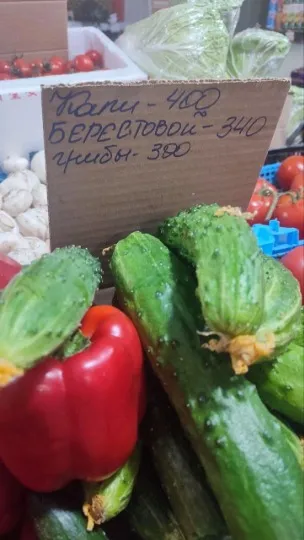 Капи - 400
БЕРЕСТОВОЙ - 340
грибы - 390